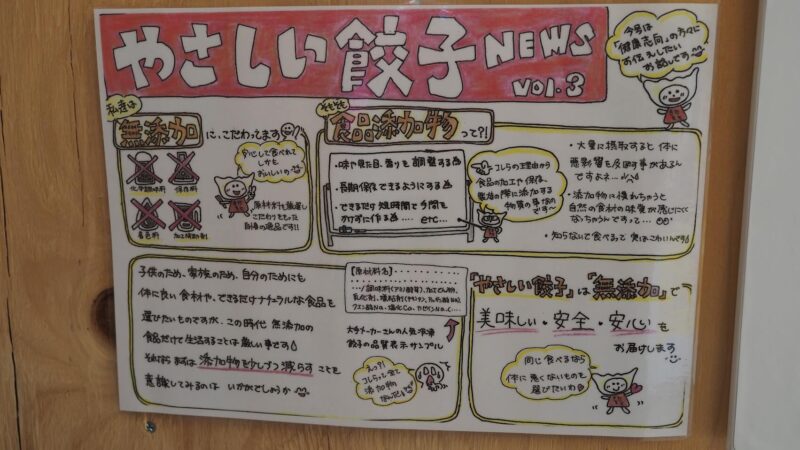 やさしい餃子 NEWS vol.3
今号は
「健康志向」の方々に
お伝えしたい
お話しです
私達は
無添加に、こだわってます
化学調味料
保存料
着色料
安心して食べれて
しかも
おいしいの
原材料も厳選し
こだわりをもった
自慢の逸品です!!
そもそも
食品添加物って?!
・味や見た目、香りを調整する
・長期保存できるようにする
・できるだけ短時間で手間を
かけずに作る…. etc…
コレらの主な理由から
食品の加工や保存、
製造の際に添加する
物質の事なの
です〜
・大量に摂取すると体に
悪影響を及ぼす事があるん
ですよネ…
・添加物に慣れちゃうと
自然の食材の味覚が感じにくく
なっちゃうんですって…
・知らないで食べるって実はこわいんです
子供のため、家族のため、自分のためにも
体に良い食材や、できるだけナチュラルな食品を
選びたいものですが、この時代 無添加の
食品だけで生活することは厳しい事です
それなら まずは添加物を少しづつ減らすことを
意識してみるのは いかがでしょうか
【原材料名】
大手メーカーさんの人気冷凍
餃子の品質表示サンプル
えっ?!
コレらって全て
添加物
なんだ
「やさしい餃子」は「無添加」で
美味しい・安全・安心を
お届けします
同じ食べるなら
体に悪くないものを
選びたいわ